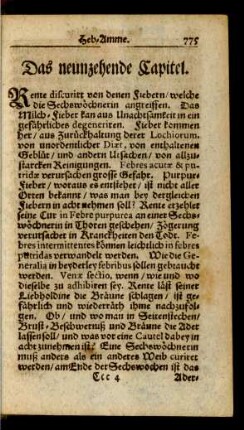 Heb-Amme. 775
Das neunzehende Capitel.
Rente discurirt von denen Fiebern/welche
die Sechswöchnerin angreiffen. Das
Milch-Fieber kan aus Unachtsamkeit in ein
gefährliches degeneriren. Fieber kommen
her/ aus Zurückhaltung derer Lochiorum,
von unordentlicher Diæt, von enthaltenen
Geblüt/ und andern Ursachen/ von allzu
starcken Reinigungen. Febres acutæ & pu-
tridæ verursachen grosse Gefahr. Purpur
Fieber/ woraus es entstehet/ ist nicht aller
Orten bekannt/ was man bey dergleichen
Fiebern in acht nehmen soll? Rente erzehlet
seine Cur in Febre purpurea an einer Sechs-
wöchnerin in Thoren geschehen/ Zögerung
verursachet in Kranckheiten den Todt. Fe-
bres intermittentes können leichtlich in febres
putridas verwandelt werden. Wie die Ge-
neralia in beyderley febribus sollen gebraucht
werden. Venæ sectio, wenn/ wie und wo
dieselbe zu adhibiren sey. Rente läst seiner
Liebholdine die Bräune schlagen/ ist ge-
fährlich und wiederräth ihme nachzufol-
gen. Ob/ und wo man in Seitenstechen/
Brust-Beschwernuß und Bräune die Ader
lassen soll/ und was vor eine Cautel dabey in
acht zunehmen ist. Eine Sechswöchnerin
muß anders als ein anderes Weib curiret
werden/ am Ende der Sechswochen ist das
Ccc 4 Ader-